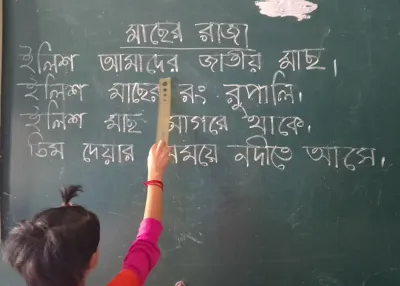 মাছের রাজা
ইলিশ আমাদের জাতীয় মাছ।
ইলিশ মাছের রং রুপালি।
ইলিশ মাছ সাগরে থাকে।
ডিম দেয়ার সময়ে নদীতে আসে।